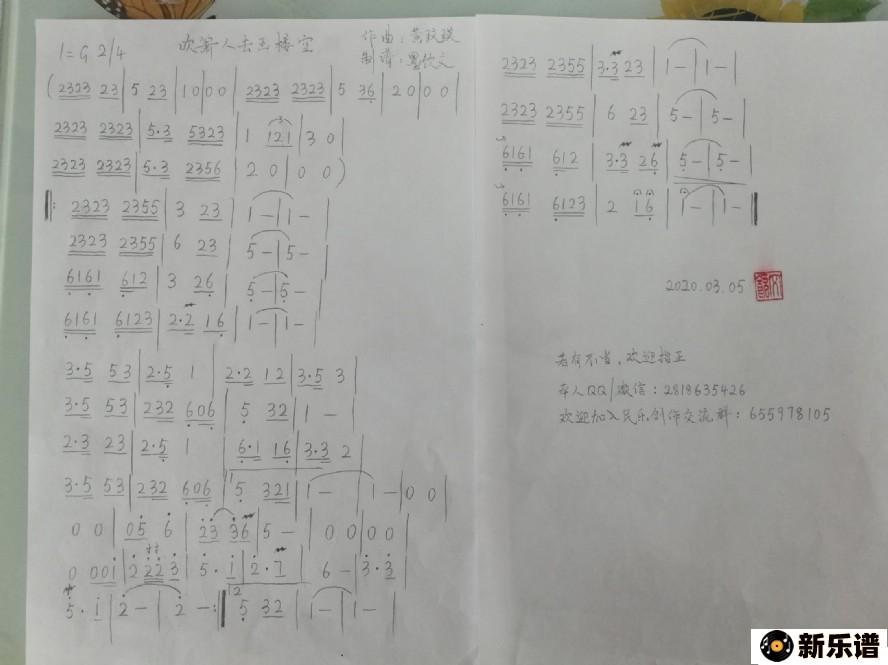 吹箫人去玉楼空
作曲：黄
1=G 2/4
制谱：
( 2323 23 | 5 23 | 1 0 | 0 0 | 2323 2323 | 5 36 | 2 0 | 0 0 |
2323 2323 | 5·3 5323 | 1 121 | 3 0 |
2323 2323 | 5·3 2356 | 2 0 | 0 0 )
‖: 2323 2355 | 3 23 | 1 – | 1 – |
2323 2355 | 6 23 | 5 – | 5 – |
6161 612 | 3 26 | 5 – | 5 – |
6161 6123 | 2·2 16 | 1 – | 1 – |
3·5 53 | 2·5 1 | 2·2 12 | 3·5 3 |
3·5 53 | 232 606 | 5 32 | 1 – |
2·3 23 | 2·5 1 | 6·1 16 | 3·3 2 |
3·5 53 | 232 606 | 1 5 321 | 1 – | 1 – | 0 0 |
0 0 | 05 6 | 23 36 | 5 – | 0 0 | 0 0 |
0 001 | 2 223 | 5·1 | 2·1 | 6 – | 3·3 |
5·1 | 2 – | 2 – :‖ 2 5 32 | 1 – | 1 – |
2323 2355 | 3·3 23 | 1 – | 1 – |
2323 2355 | 6 23 | 5 – | 5 – |
6161 612 | 3·3 26 | 5 – | 5 – |
6161 6123 | 2 16 | 1 – | 1 – ‖
2020.03.05
若有不当，欢迎指正
本人QQ/微信：2818635426
欢迎加入民乐创作交流群：655978105
新乐谱